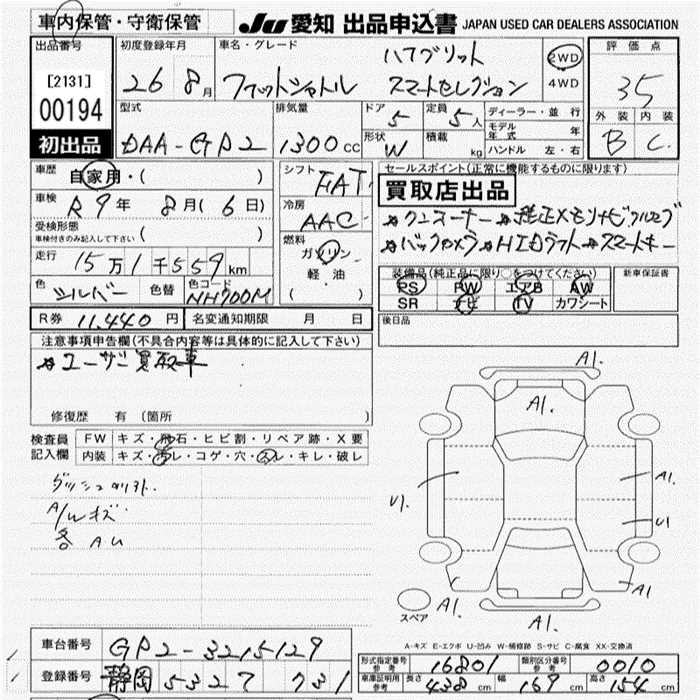 車内保管・守衛保管
JU 愛知 出品申込書 JAPAN USED CAR DEALERS ASSOCIATION
出品番号 [2131] 00194 初出品
初度登録年月 26 8月
車名・グレード フィットシャトル ハイブリット スマートセレクション
2WD 4WD
評価点 35
外装 内装
B C
型式 DAA-GP2
排気量 1300 cc
ドア 5 定員 5人
形状 W 積載 kg
ディーラー・並行
モデル年式 年
ハンドル 左・右
車歴 自家用・( )
車検 R9年 8月(6日)
受検形態
車検付きのみ記入して下さい
走行 15万1千559km
色 シルバー 色替 色コード NH700M
シフト FAT
冷房 AAC
燃料 ガソリン
軽油
( )
セールスポイント(正常に機能するものに限ります)
買取店出品
*ワンオーナー *純正メモリナビフルセグ
*バックカメラ *HIDライト *スマートキー
装備品(純正品に限り○をつけてください) 新車保証書
PS PW エアB AW
SR ナビ TV カワシート
R券 11,440円 名変通知期限 月 日
後日品
注意事項申告欄(不具合内容等は具体的に記入して下さい)
*ユーザー買取車
修復歴 有(箇所 )
検査員記入欄
FW キズ・飛石・ヒビ割・リペア跡・X要
内装 キズ・汚レ・コゲ・穴・スレ・キレ・破レ
A/Wキズ
各 A.U
A1.
A1.
U1.
A1.
U1
A1.
A1
A1.
スペア
A-キズ E-エクボ U-凹み W-補修跡 S-サビ C-腐食 XX-交換済
車台番号 GP2-3215129
登録番号 静岡 5327 731
形式指定番号 参考 16801 類別区分番号 参考 0010
車庫証明用 参考 長さ 438cm 幅 169cm 高さ 154cm